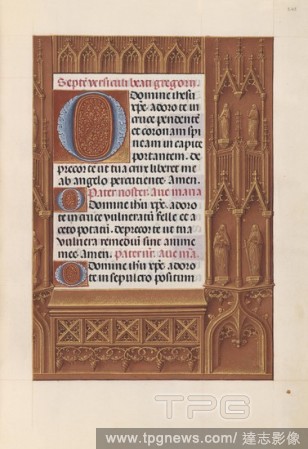 Septē versiculi beati gregorii.
O Domine ihesu
xp̄e adoro te in
cruce pendentē
et coronam spi
neam in capite
portantem. de
precor te ut tua crux liberet me
ab angelo percuciente. amen.
Pater noster. aue maria
O Domine ihū xp̄e adoro
te in cruce vulneratū felle et a
ceto potatū. deprecor te ut tua
vulnera remediū sint anime
mee. amen. pater nr̄. aue m̄.
O Domine ihū xp̄e adoro
te in sepulcro positum
TPG
www.tpgnews.com/ 達志影像